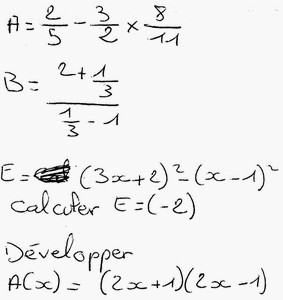 A = 2/5 - 3/2 × 8/11
B = (2 + 1/3) / (1/3 - 1)
E = (3x+2)² - (x-1)²
calculer E=(-2)
Développer
A(x) = (2x+1)(2x-1)